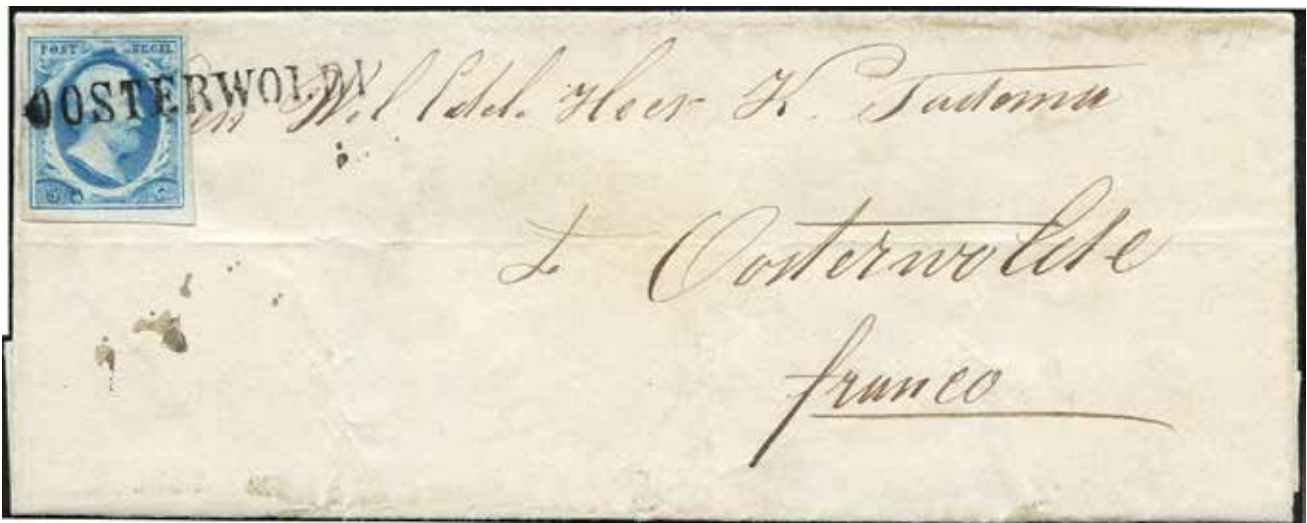 POST ZEGEL
OOSTERWOLDE
Den Wel Edel. Heer K. Tadema
te Oosterwolde
franco
5 C